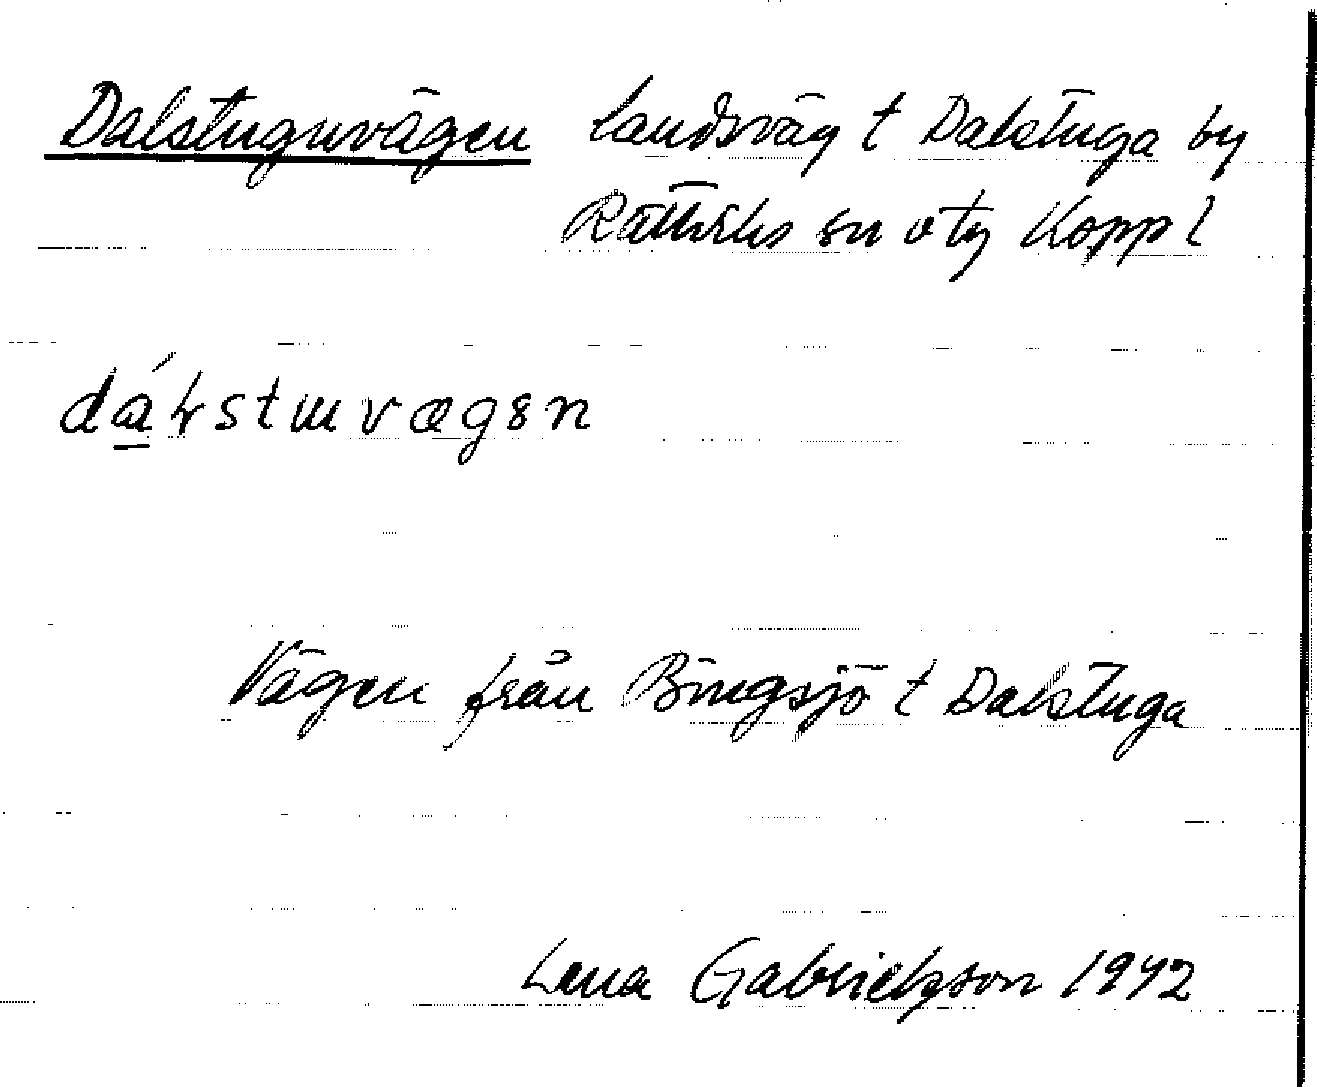 Dalstuguvägen Landsväg t Dalstuga by
Rättviks sn o tg Kopp l
Vägen från Bingsjö t Dalstuga
Lena Gabrielsson 1942